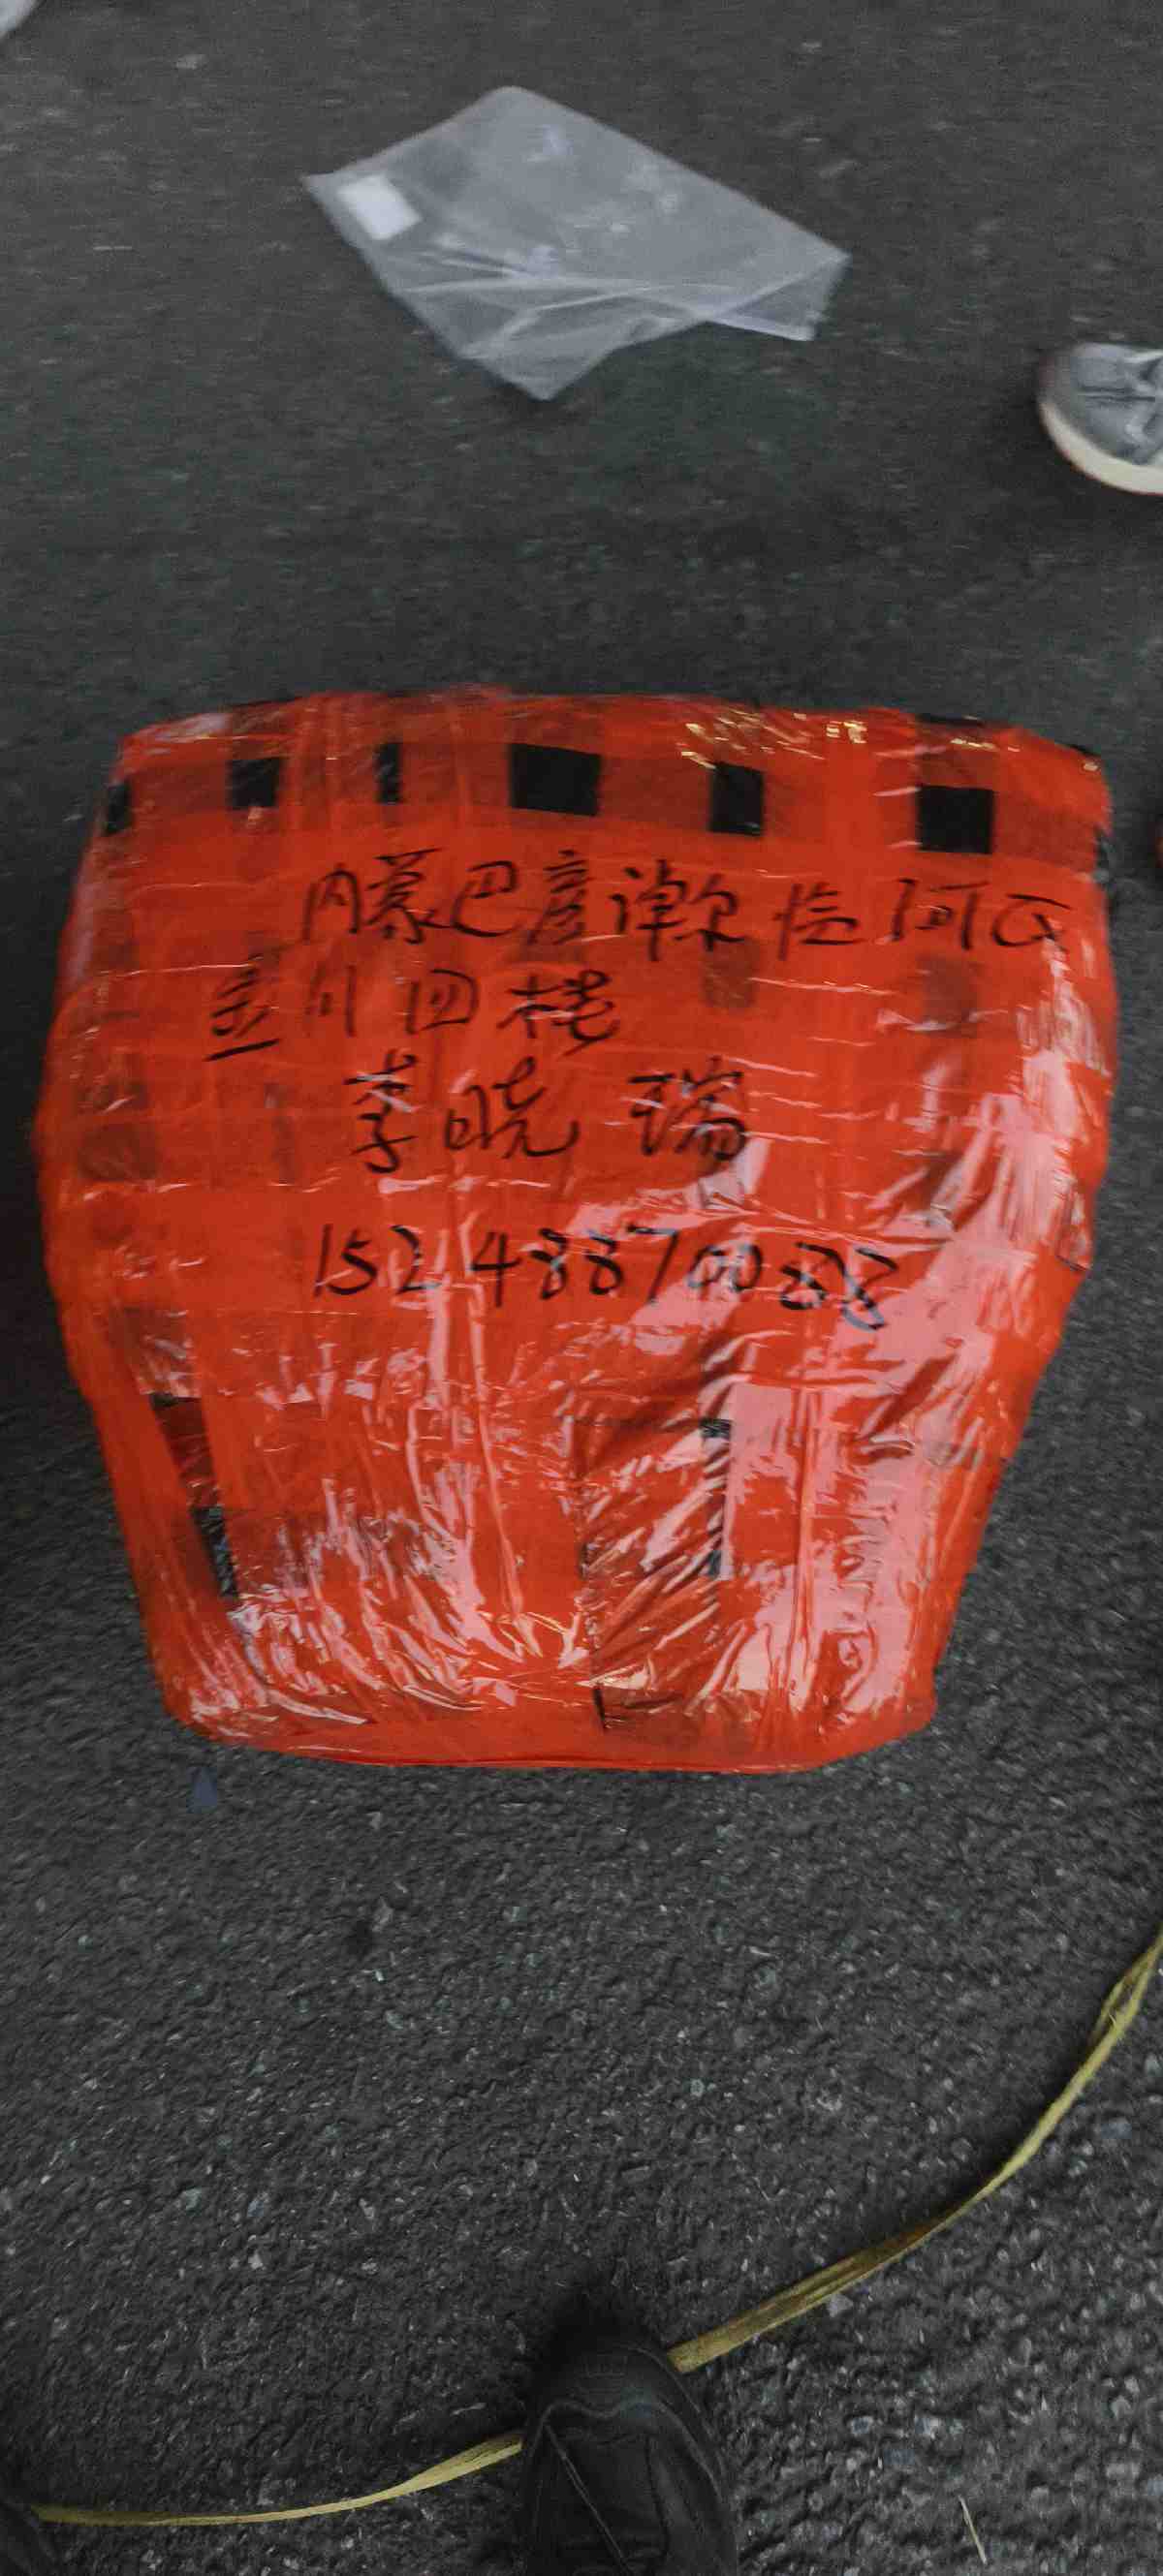 内蒙巴彦淖尔临河区
金川四栋
李晓瑞
15248870088